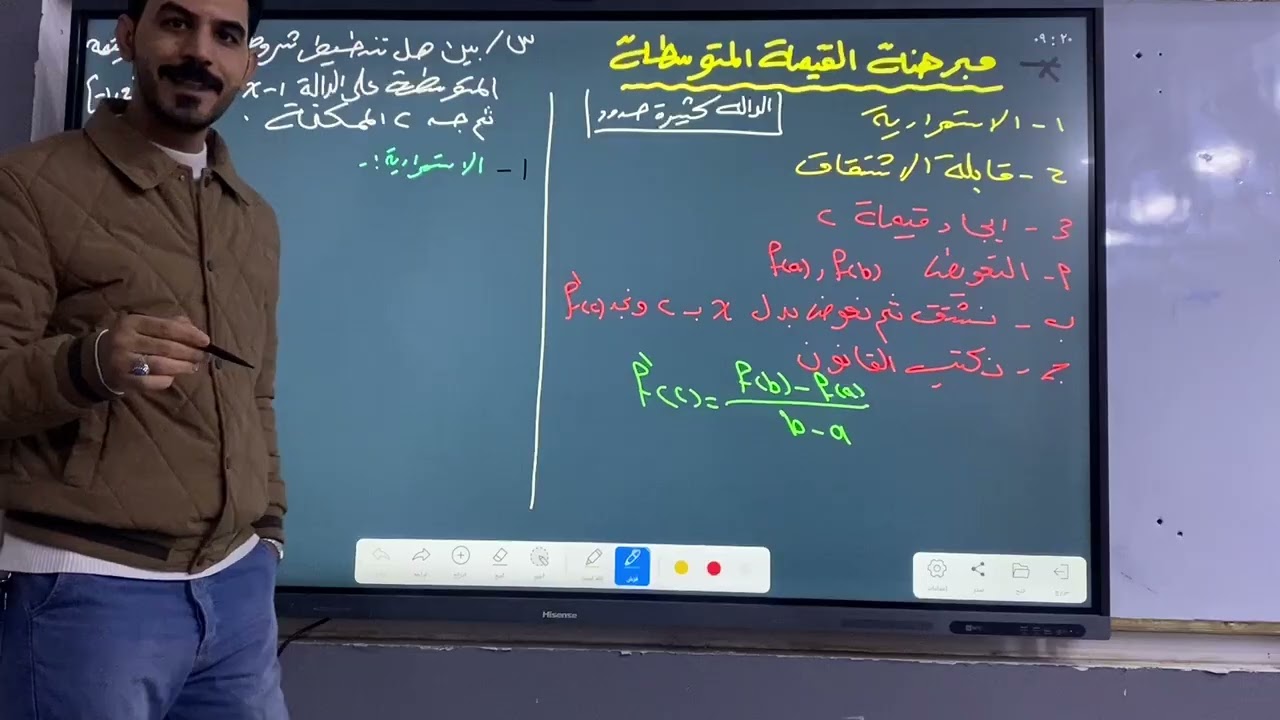 ٠٩:٢٠
مبرهنة القيمة المتوسطة
الدالة كثيرة حدود
١ - الاستمرارية
٢ - قابلة الاشتقاق
3 - ايجاد قيمة c
P - التعويض f(a), f(b)
ب - نشتق ثم نعوض بدل x ب c ونجد f'(c)
ج - نكتب القانون
f'(c) = f(b) - f(a) / b - a
س / بين هل تنطبق
المتوسطة على الدالة x - 1
ثم جد c الممكنة .
١ - الاستمرارية :-
Hisense